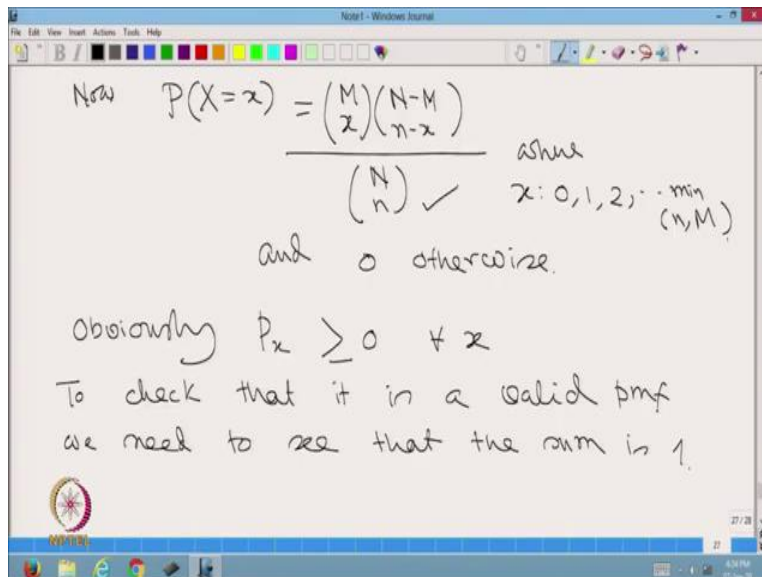 Note1 - Windows Journal
File Edit View Insert Actions Tools Help
Now P(X=x) = (M x)(N-M n-x)
(N n) ✓ where
x: 0, 1, 2, ·· min
(n, M)
and 0 otherwise.
Obviously Px ≥ 0 ∀ x
To check that it is a valid pmf
we need to see that the sum is 1.
NPTEL
27 / 28
27
4:24 PM